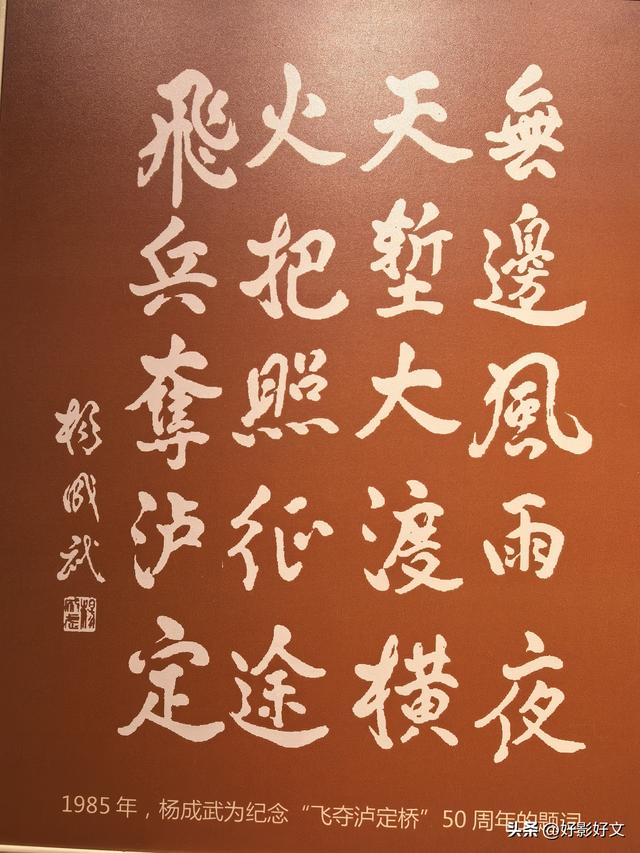 無邊風雨夜
天塹大渡橫
火把照征途
飛兵奪泸定
杨成武
1985年，杨成武为纪念“飞夺泸定桥”50周年的题词
头条 @好影好文